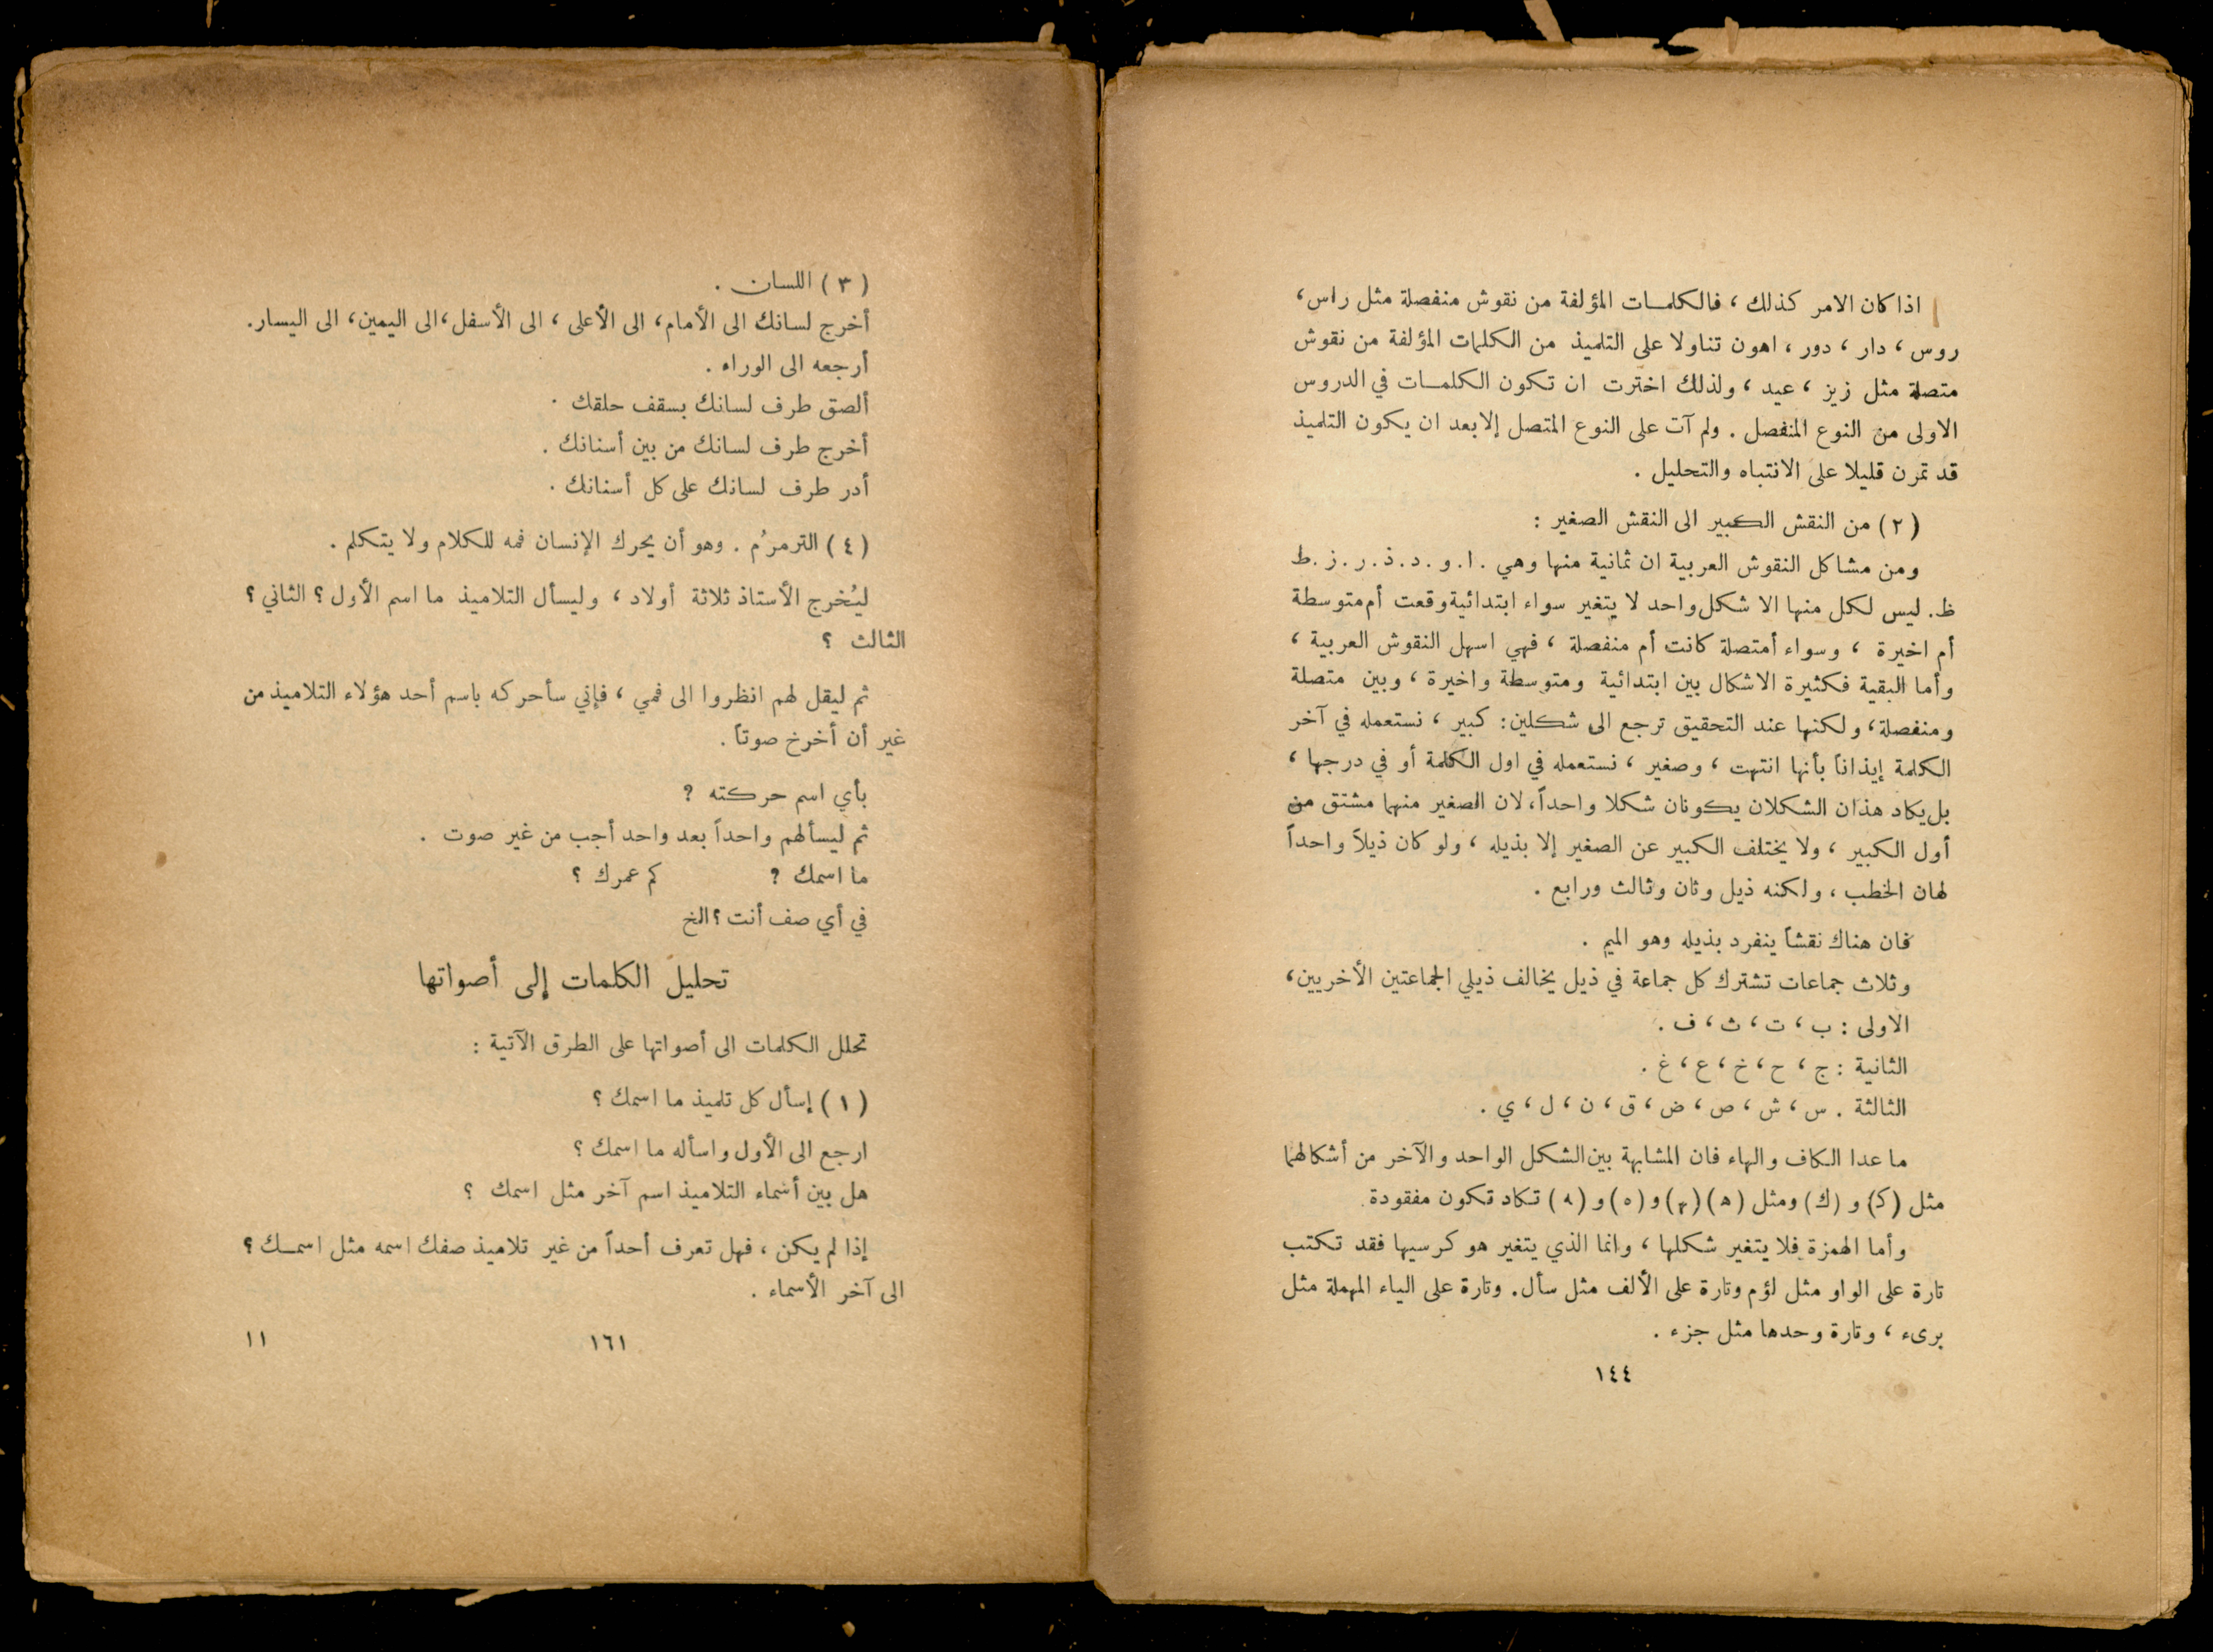 اذا كان الامر كذلك ، فالكلمات المؤلفة من نقوش منفصلة مثل راس،
روس ، دار ، دور ، اهون تناولا على التلميذ من الكلمات المؤلفة من نقوش
متصلة مثل زيز ، عيد ، ولذلك اخترت ان تكون الكلمات في الدروس
الاولى من النوع المنفصل . ولم آت على النوع المتصل إلا بعد ان يكون التلميذ
قد تمرن قليلا على الانتباه والتحليل .
( ٢ ) من النقش الكبير الى النقش الصغير :
ومن مشاكل النقوش العربية ان ثمانية منها وهي . ا . و . د . ذ . ر . ز . ط
ظ . ليس لكل منها الا شكل واحد لا يتغير سواء ابتدائية وقعت أم متوسطة
أم اخيرة ، وسواء أمتصلة كانت أم منفصلة ، فهي اسهل النقوش العربية ،
وأما البقية فكثيرة الاشكال بين ابتدائية ومتوسطة واخيرة ، وبين متصلة
ومنفصلة ، ولكنها عند التحقيق ترجع الى شكلين : كبير ، نستعمله في آخر
الكلمة إيذاناً بأنها انتهت ، وصغير ، نستعمله في اول الكلمة أو في درجها ،
بل يكاد هذان الشكلان يكونان شكلا واحداً، لان الصغير منهما مشتق من
أول الكبير ، ولا يختلف الكبير عن الصغير إلا بذيله ، ولو كان ذيلاً واحداً
لهان الخطب ، ولكنه ذيل وثان وثالث ورابع .
فان هناك نقشاً ينفرد بذيله وهو الميم .
وثلاث جماعات تشترك كل جماعة في ذيل يخالف ذيلي الجماعتين الأخريين،
الاولى : ب ، ت ، ث ، ف .
الثانية : ج ، ح ، خ ، ع ، غ .
الثالثة . س ، ش ، ص ، ض ، ق ، ن ، ل ، ي .
ما عدا الكاف والهاء فان المشابهة بين الشكل الواحد والآخر من أشكالهما
مثل (كـ) و (ك) ومثل (ه) (ـهـ) و (ه) و (ـه) تكاد تكون مفقودة .
وأما الهمزة فلا يتغير شكلها ، وانما الذي يتغير هو كرسيها فقد تكتب
تارة على الواو مثل لؤم وتارة على الألف مثل سأل . وتارة على الياء المهملة مثل
برىء ، وتارة وحدها مثل جزء .
١٤٤
( ٣ ) اللسان .
أخرج لسانك الى الأمام، الى الأعلى ، الى الأسفل،الى اليمين، الى اليسار.
أرجعه الى الوراء .
ألصق طرف لسانك بسقف حلقك .
أخرج طرف لسانك من بين أسنانك .
أدر طرف لسانك على كل أسنانك .
( ٤ ) الترمرُم . وهو أن يحرك الإنسان فمه للكلام ولا يتكلم .
ليُخرج الأستاذ ثلاثة أولاد ، وليسأل التلاميذ ما اسم الأول ؟ الثاني ؟
الثالث ؟
ثم ليقل لهم انظروا الى فمي ، فإني سأحركه باسم أحد هؤلاء التلاميذ من
غير أن أخرخ صوتاً .
بأي اسم حركته ؟
ثم ليسألهم واحداً بعد واحد أجب من غير صوت .
ما اسمك ؟ كم عمرك ؟
في أي صف أنت ؟ الخ
تحليل الكلمات إلى أصواتها
تحلل الكلمات الى أصواتها على الطرق الآتية :
( ١ ) إسأل كل تلميذ ما اسمك ؟
ارجع الى الأول واسأله ما اسمك ؟
هل بين أسماء التلاميذ اسم آخر مثل اسمك ؟
إذا لم يكن ، فهل تعرف أحداً من غير تلاميذ صفك اسمه مثل اسمك ؟
الى آخر الأسماء .
١٦١ ١١